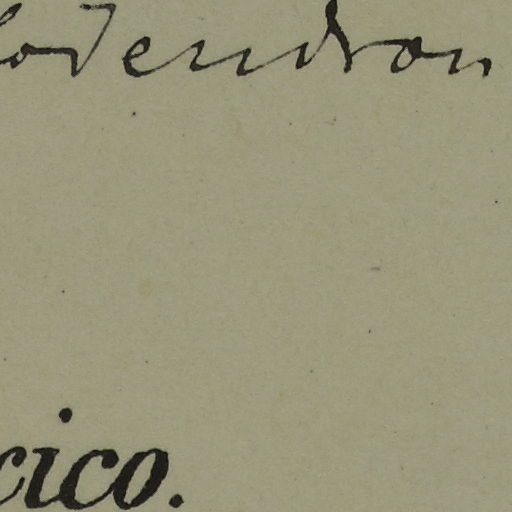 lodendron
cico.